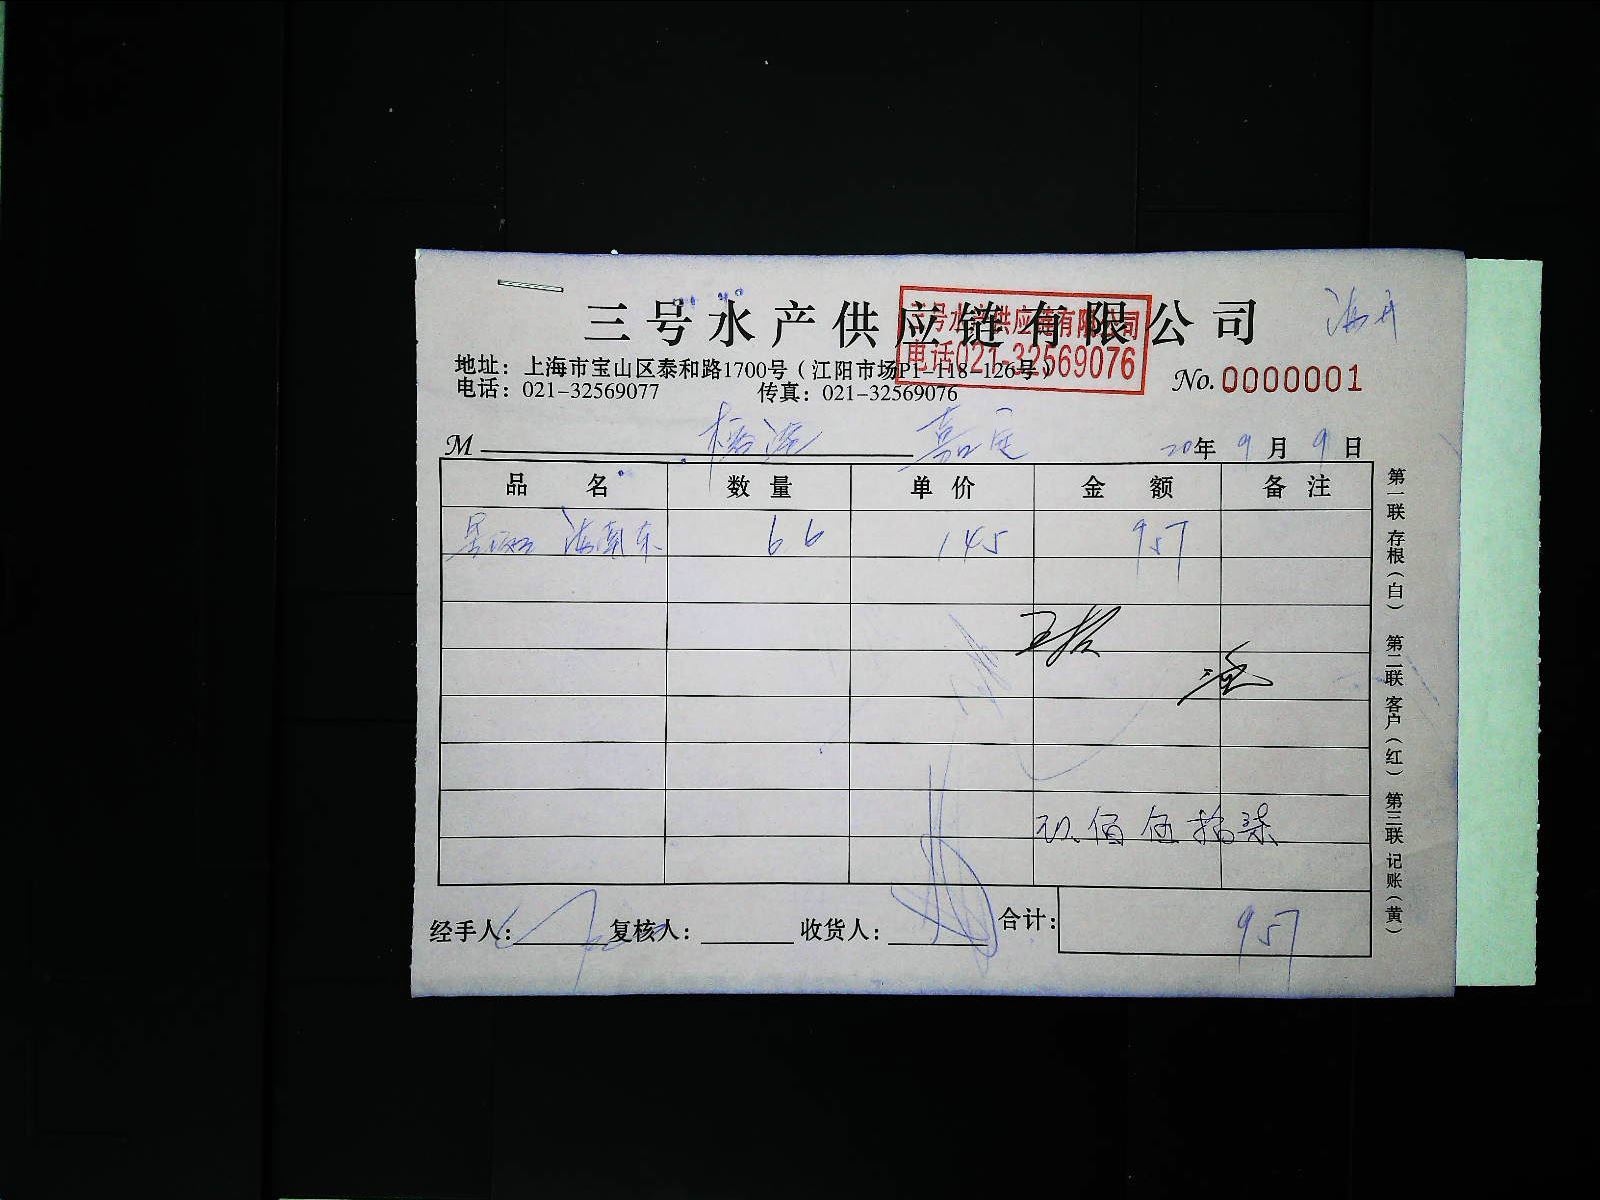 三号水产供应链有限公司
三号水产供应链有限公司
电话021-32569076
地址：上海市宝山区泰和路1700号（江阳市场P1-118-126号）
电话：021-32569077 传真：021-32569076
No.0000001
M 嘉定 20年9月9日
品名 数量 单价 金额 备注
66 145 957
玖佰伍拾柒
经手人： 复核人： 收货人： 合计： 957
第一联 存根（白） 第二联 客户（红） 第三联 记账（黄）